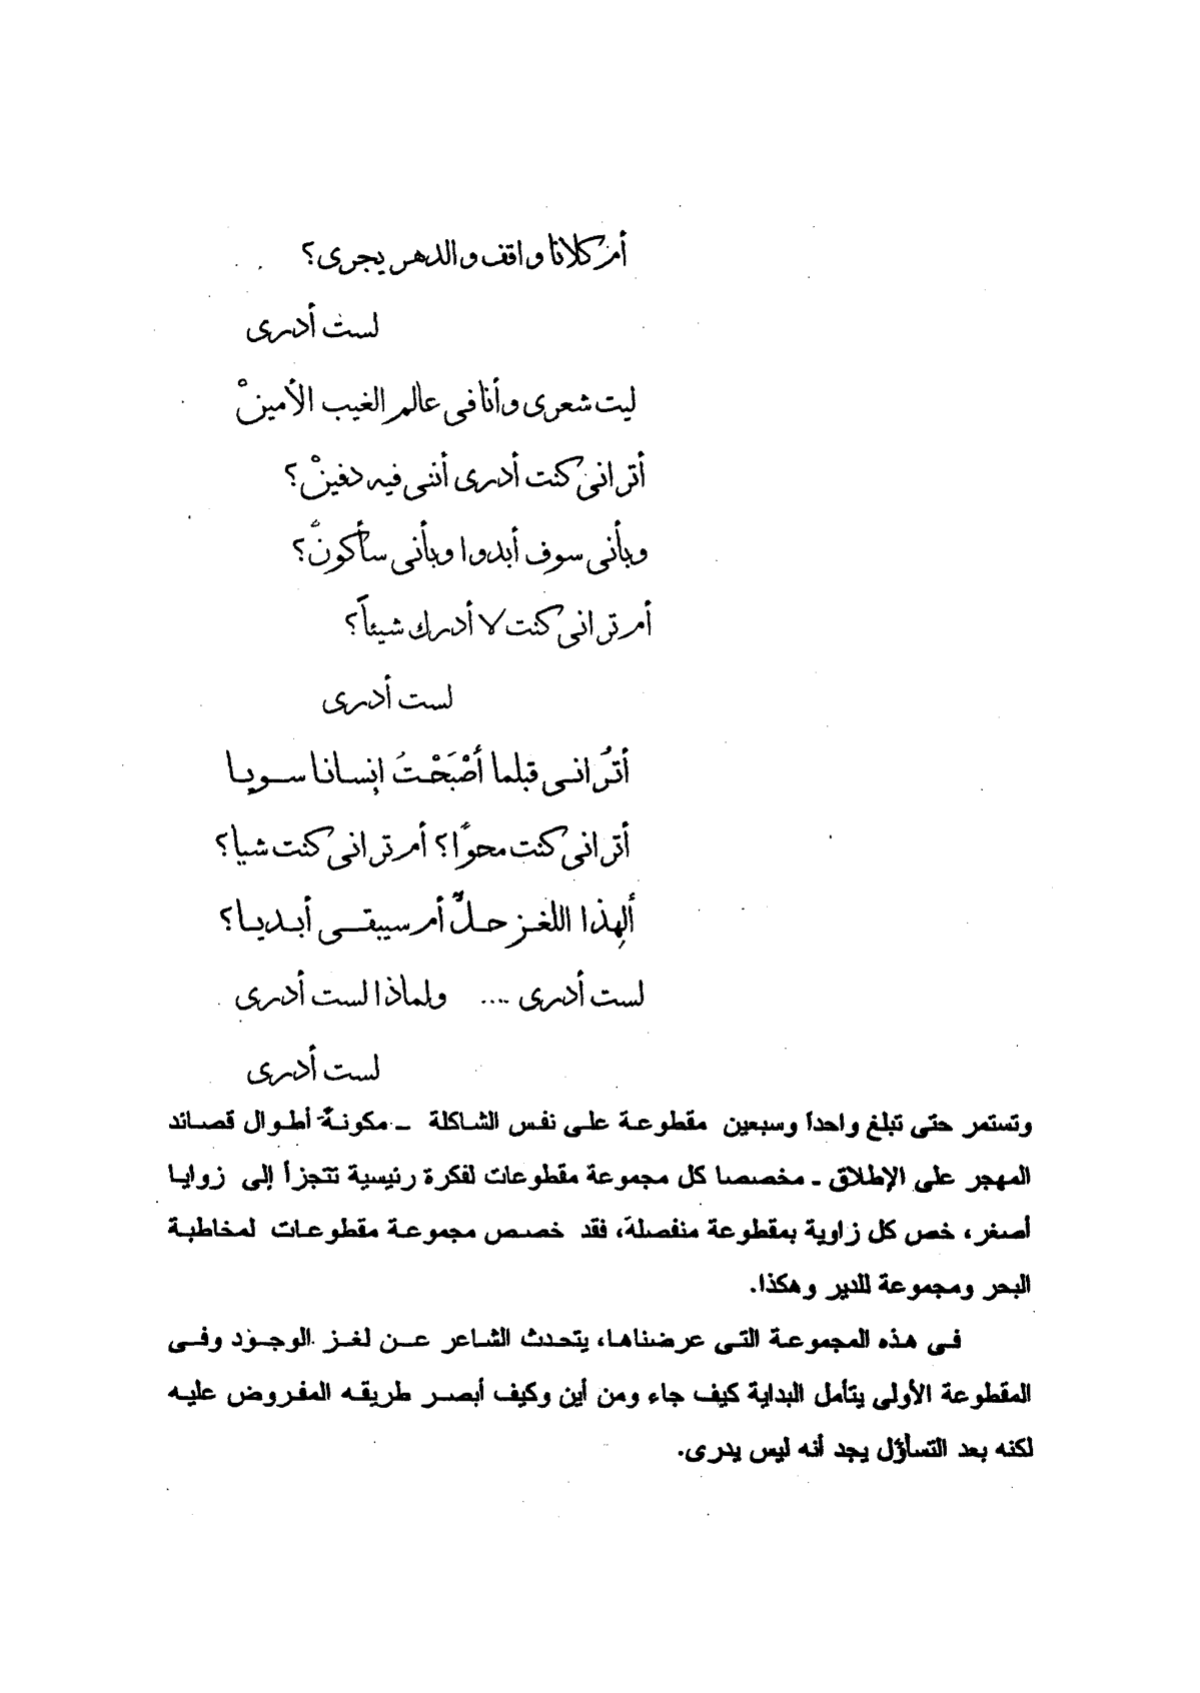 أم كلانا واقف والدهر يجرى؟
لست أدرى
ليت شعرى وأنا فى عالم الغيب الأمينْ
أترانى كنت أدرى أننى فيه دفينْ؟
وبأنى سوف أبدوا وبأنى سأكونْ؟
أم ترانى كنت لا أدرك شيئاً؟
لست أدرى
أتُرانى قبلما أصْبَحْتُ إنسانا سويا
أترانى كنت محوًا؟ أم ترانى كنت شيا؟
ألِهذا اللغز حلٌّ أم سيبقى أبديا؟
لست أدرى .... ولماذا لست أدرى
لست أدرى
وتستمر حتى تبلغ واحداً وسبعين مقطوعة على نفس الشاكلة ـ مكونةً أطوال قصائد
المهجر على الإطلاق ـ مخصصا كل مجموعة مقطوعات لفكرة رئيسية تتجزأ إلى زوايا
أصغر، خص كل زاوية بمقطوعة منفصلة، فقد خصص مجموعة مقطوعات لمخاطبة
البحر ومجموعة للدير وهكذا.
فى هذه المجموعة التى عرضناها، يتحدث الشاعر عن لغز الوجود وفى
المقطوعة الأولى يتأمل البداية كيف جاء ومن أين وكيف أبصر طريقه المفروض عليه
لكنه بعد التساؤل يجد أنه ليس يدرى.